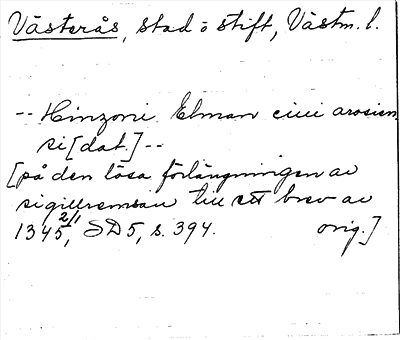 Västerås, stad o stift, Västm. l.
-- Hinzoni Elman ciui arosien
si [dat.] --
[på den lösa förlängningen av
sigillremsan till ett brev av
1345 2/1, SD 5, s. 394. orig.]